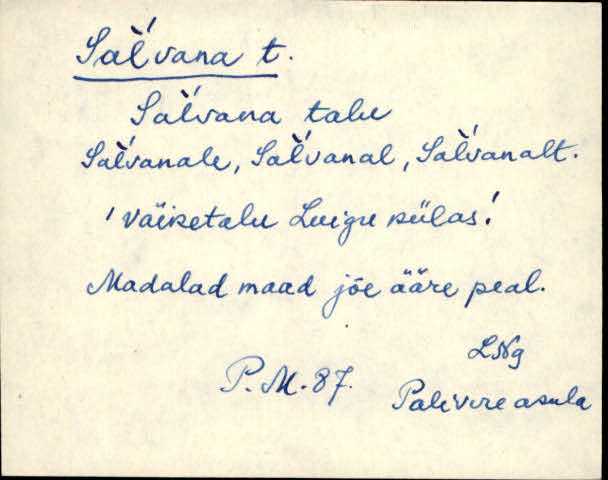 Sal̆'vana t.
Sal̆'vana talu
Sal̆'vanale, Sal̆'vanal, Sal̆'vanalt.
'väiketalu Luigu külas!
Madalad maad jõe ääre peal.
LNg
P.M.87.
Palivere asula